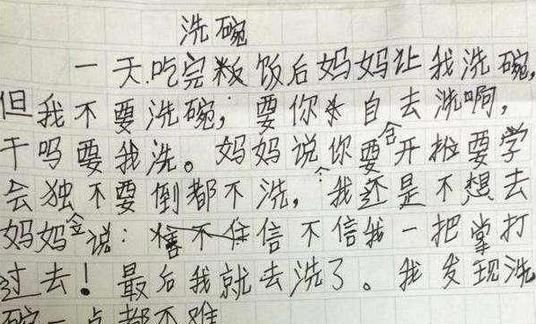 洗碗
一天吃完粄饭后妈妈让我洗碗,
但我不要洗碗,要你自去洗啊,
干吗要我洗。妈妈说你要含开拉要学
会独不要倒都不洗,个我还是不想去
妈妈会说:信不信我一把掌打
过去!最后我就去洗了。我发现洗
碗一点都不难